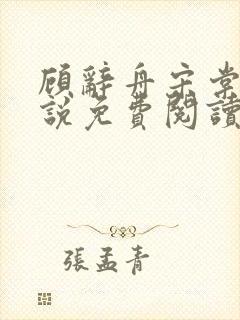 顾辭舟宋棠
説免費閱讀
張孟青